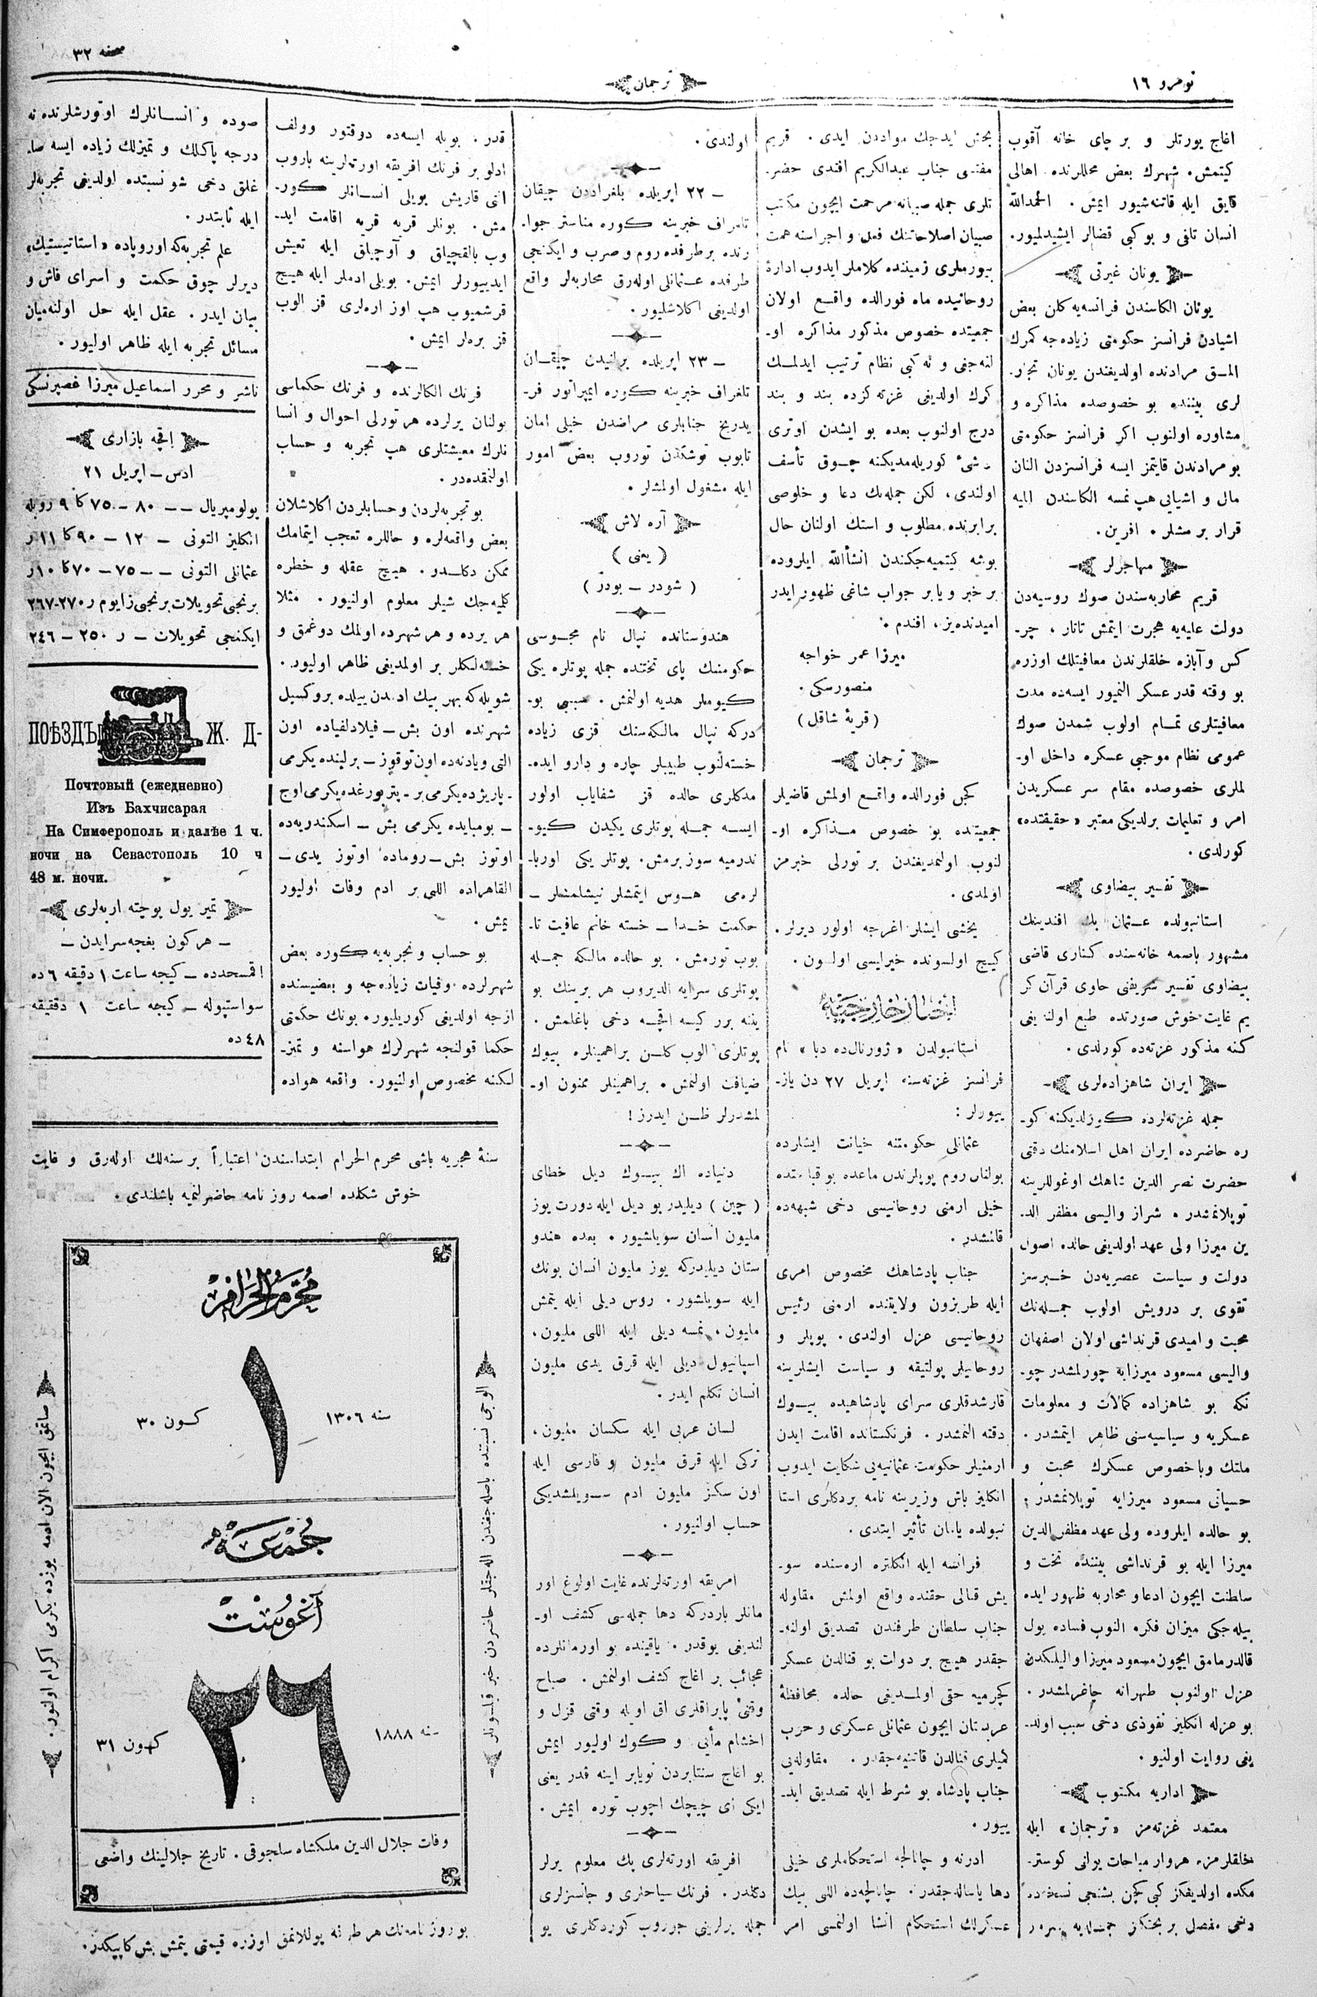 نومرو ١٦
ترجمان
صحفه ٣٢
اغاج يورتلر و بر چاى خانه آقوب
كيتمش. شهرك بعض محللرنده اهالى
قايق ايله قاتنه شيور ايمش. الحمدالله
انسان تلفى و بوكبى قضالر ايشيدلميور.
يونان غيرتى
يونان الكاسندن فرانسه يه كلن بعض
اشيادن فرانسز حكومتى زياده جه كمرك
المق مرادنده اولديغندن يونان تجار
لرى بيننده بو خصوصده مذاكره و
مشاوره اولنوب اكر فرانسز حكومتى
بو مرادندن قايتمز ايسه فرانسزدن النان
مال و اشيايى هپ نمسه الكاسندن المايه
قرار برمشلر. افرين.
مهاجرلر
قريم محاربه سندن صوك روسيه دن
دولت عليه يه هجرت ايتمش تاتار، چر-
كس و آبازه خلقلرندن معافيتلك اوزره
بو وقته قدر عسكر النميور ايسه ده مدت
معافيتلرى تمام اولوب شمدن صوك
عمومى نظام موجبى عسكره داخل او-
لملرى خصوصده مقام سر عسكريدن
امر و تعليمات برلديكى معتبر «حقيقتده»
كورلدى.
تفسير بيضاوى
استانبولده عثمان بك افندينك
مشهور باصمه خانه سنده كنارى قاضى
بيضاوى تفسير شريفنى حاوى قرآن كر
يم غايت خوش صورتده طبع اولنديغى
كنه مذكور غزته ده كورلدى.
ايران شاهزاده لرى
جمله غزته لرده كوزلديكنه كو-
ره حاضرده ايران اهل اسلامنك دقتى
حضرت نصر الدين شاهك اوغوللرينه
توپلانمشدر. شراز واليسى مظفر الد-
ين ميرزا ولى عهد اولديغى حالده اصول
دولت و سياست عصريه دن خبرسز
تقوى بر درويش اولوب جمله نك
محبت و اميدى قرنداشى اولان اصفهان
واليسى مسعود ميرزايه چورلمشدر چو-
نكه بو شاهزاده كمالات و معلومات
عسكريه و سياسيه سنى ظاهر ايتمشدر.
ملتك و باخصوص عسكرك محبت و
حسياتى مسعود ميرزايه توپلانمشدر؛
بو حالده ايلروده ولى عهد مظفر الدين
ميرزا ايله بو قرنداشى بيننده تخت و
سلطنت ايچون ادعا و محاربه ظهور ايده
بيله جكى ميزان فكره النوب فساده يول
قالدرمامق ايچون مسعود ميرزا واليلكدن
عزل اولنوب طهرانه چاغرلمشدر.
بو عزله انكليز نفوذى دخى سبب اولد-
يغى روايت اولنيور.
اداريه مكتوب
معتمد غزته مز «ترجمان» ايله
خلقلرمزه هروار مباحات يولنى كوستر-
مكده اولديفكز كبى كچن بشنجى نسخه ده
دخى مفصل بر بحثكز جمله يه سرور
بخش ايدجك موادندن ايدى. قريم
مفتسى جناب عبدالكريم افندى حضر-
تلرى جمله صبيانه مرحمت ايچون مكتب
صبيان اصلاحاتنك فعل و اجراسنه همت
بيورملرى زميننده كلاملر ايدوب اداره
روحانيده ماه فورالده واقع اولان
جمعيتده خصوص مذكور مذاكره او-
لنه جغى و نه كبى نظام ترتيب ايدلمك
كرك اولديغى غزته كزده بند و بند
درج اولنوب بعده بو ايشدن اوترى
شئ كوريله مديكنه چوق تأسف
اولندى، لكن جمله نك دعا و خلوصى
برابرنده مطلوب و استك اولنان حال
بوشه كيتميه جكندن انشأالله ايلروده
بر خبر و يا بر جواب شاغى ظهور ايدر
اميدنده يز، افندم.
ميرزا عمر خواجه
منصورسكى.
(قريهٔ شاقل)
ترجمان
كچن فورالده واقع اولمش قاضيلر
جمعيتده بو خصوص مذاكره او-
لنوب اولنمديغندن بر تورلى خبرمز
اولمدى.
يخشى ايشلر اغرجه اولور ديرلر.
كيچ اولسونده خيرليسى اولسون.
اخبار خارجيه
استانبولدن «ژورنال ده دبا» نام
فرانسز غزته سنه اپريل ٢٧ دن ياز-
ييورلر:
عثمانلى حكومتنه خيانت ايشلرده
بولنان روم پوپلرندن ماعده بو قياقده
خيلى ارمنى روحانيسى دخى شبهه ده
قالمشدر.
جناب پادشاهك مخصوص امرى
ايله طربزون ولايتنده ارمنى رئيس
روحانيسى عزل اولندى. پوپلر و
روحانيلر پولتيقه و سياست ايشلرينه
قارشدقلرى سراى پادشاهيده بيوك
دقته النمشدر. فرنكستانده اقامت ايدن
ارمنيلر حكومت عثمانيه يى شكايت ايدوب
انكليز باش وزيرينه نامه بردكلرى استا
نبولده يامان تأثير ايتدى.
فرانسه ايله انكلتره اره سنده سو-
يش قنالى حقنده واقع اولمش مقاوله
جناب سلطان طرفندن تصديق اولنه-
جقدر هيچ بر دولت بو قنالدن عسكر
كچرميه حقى اولمديغى حالده محافظهٔ
عربستان ايچون عثمانلى عسكرى و حرب
كميلرى قنالدن قاتنيه جقدر. مقاوله يى
جناب پادشاه بو شرط ايله تصديق ايد-
ييور.
ادرنه و چاتالجه استحكاملرى خيلى
دها ياساله جقدر. چاتالجه ده اللى بيك
عسكرلك استحكام انشا اولنمسى امر
اولندى.
— ٢٢ اپريلده بلغراددن چيقان
تلغراف خبرينه كوره مناستر جوا-
رنده بر طرفده روم و صرب و ايكنجى
طرفده عثمانلى اوله رق محاربه لر واقع
اولديغى اكلاشليور.
— ٢٣ اپريلده برليندن چيقان
تلغراف خبرينه كوره ايمپراتور فر-
يدريخ جنابلرى مراضدن خيلى امان
تابوب توشكدن توروب بعض امور
ايله مشغول اولمشلر.
آره لاش
(يعنى)
(شودر - بودر)
هندوستانده نپال نام مجوسى
حكومتنك پاى تختنده جمله پوتلره يكى
كيوملر هديه اولنمش. سببى بو-
دركه نپال مالكه سنك قزى زياده
خسته لنوب طبيبلر چاره و دارو ايده-
مدكلرى حالده قز شفاياب اولور
ايسه جمله پوتلرى يكيدن كيو-
ندرميه سوز برمش. پوتلر يكى اوربا-
لره مى هوس ايتمشلر نيشلمشلر —
حكمت خدا — خسته خانم عافيت تا-
بوب تورمش. بو حالده مالكه جمله
پوتلرى سرايه الديروب هر برينك بو
يننه برر كيسه اقچه دخى باغلمش.
پوتلرى الوب كلن براهمينلره بيوك
ضيافت اولنمش. براهمينلر ممنون او-
لمشدرلر ظن ايدرز!
دنياده اك بيوك ديل خطاى
(چين) ديليدر بو ديل ايله دورت يوز
مليون انسان سويلشيور. بعده هندو
ستان ديليدركه يوز مليون انسان بونك
ايله سويلشور. روس ديلى ايله يتمش
مليون، نمسه ديلى ايله اللى مليون،
اسپانيول ديلى ايله قرق يدى مليون
انسان تكلم ايدر.
لسان عربى ايله سكسان مليون،
تركى ايله قرق مليون و فارسى ايله
اون سكز مليون ادم سويلشديكى
حساب اولنيور.
امريقه اورته لرنده غايت اولوغ اور
مانلر باردركه دها جمله سى كشف او-
لنديغى يوقدر. ياقينده بو اورمانلرده
عجائب بر اغاج كشف اولنمش. صباح
وقتى پاپراقلرى اق اويله وقتى قزل و
اخشام مأيى و كوك اوليور ايمش
بو اغاج سنتابردن نويابر اينه قدر يعنى
ايكى اى چيچك اچوب توره ايمش.
افريقه اورته لرى پك معلوم يرلر
دكلدر. فرنك سياحلرى و جانسزلرى
جمله يرلرينى چوروب كوردكلرى يو
قدر. بويله ايسه ده دوقتور وولف
ادلو بر فرنك افريقه اورته لرينه باروب
اتى قاريش بويلى انسانلر كور-
مش. بونلر قريه قريه اقامت ايد-
وب بالقچيلق و آوچيلق ايله تعيش
ايدييورلر ايمش. بويلى ادملر ايله هيچ
قرشميوب هپ اوز اره لرى قز الوب
قز برهلر ايمش.
فرنك الكالرنده و فرنك حكماسى
بولنان يرلرده هر تورلى احوال و انسا
نلرك معيشتلرى هپ تجربه و حساب
اولنمقده در.
بو تجربه لردن و حسابلردن اكلاشلان
بعض واقعه لره و حاللره تعجب ايتمامك
ممكن دكلدر. هيچ عقله و خطره
كليه جك شيلر معلوم اولنيور. مثلا
هر يرده و هر شهرده اولمك دوغمق و
خسته لكلر بر اولمديغى ظاهر اوليور.
شويله كه بهر بيك ادمدن بيلده بروكسيل
شهرنده اون بش — فيلادلفياده اون
التى ويانه ده اون توقوز — برلينده يكرمى
- پاريژده يكرمى بر - پتربورغده يكرمى اوچ
— بومبايده يكرمى بش — اسكندريه ده
اوتوز بش — روماده اوتوز يدى —
القاهراده اللى بر ادم وفات اوليور
يمش.
بو حساب و تجربه يه كوره بعض
شهرلرده وفيات زياده جه و بعضيسنده
ازجه اولديغى كوريليور. بونك حكمتى
حكما قولنجه شهرلرك هواسنه و تميز-
لكنه مخصوص اولنيور. واقعه هواده
صوده و انسانلرك اوتورشلرنده نه
درجه پاكلك و تميزلك زياده ايسه صا-
غلق دخى شو نسبتده اولديغى تجربه لر
ايله ثابتدر.
علم تجربه كه اوروپاده «استاتيستيك»
ديرلر چوق حكمت و اسراى فاش و
بيان ايدر. عقل ايله حل اولنه ميان
مسائل تجربه ايله ظاهر اوليور.
ناشر و محرر اسماعيل ميرزا غصپرنسكى
اقچه بازارى
ادس — اپريل ٢١
يولومپريال — — ٨٠ — ٧٥ كا ٩ روبله
انكليز التونى — ١٢ — ٩٠ كا ١١ ر
عثمانلى التونى — — ٧٥ — ٧٠ كا ١٠ ر
برنجى تحويلات برنجى زايوم ر ٢٧٠-٢٦٧
ايكنجى تحويلات — ر ٢٥٠ — ٢٤٦
ПОѢЗДЫ Ж. Д-
Почтовый (ежедневно)
Изъ Бахчисарая
На Симферополь и далѣе 1 ч.
ночи на Севастополь 10 ч
48 м. ночи.
تمير يول پوچته اربه لرى
— هركون بغچه سرايدن —
اقمسجدده — كيجه ساعت ١ دقيقه ٦ ده
سواستپوله — كيجه ساعت ١ دقيقه
٤٨ ده
سنهٔ هجريه باشى محرم الحرام ابتداسندن اعتباراً بر سنه لك اوله رق و غايت
خوش شكلده اصمه روز نامه حاضرلنميه باشلندى.
محرم الحرام
سنه ١٣٠٦
١
كون ٣٠
جمعه
آغوست
سنه ١٨٨٨
٢٦
كون ٣١
وفات جلال الدين ملكشاه سلجوقى. تاريخ جلالينك واضعى
الوجى نسبتده باصله جقندن اله جقلر حاضردن خبر قيلسونلر
صاتمق ايچون الان ادمه يوزده يكرمى اكرام اولنور.
بو روز نامه نك هر طرفه يوللانمق اوزره قيمتى يتمش بش كاپيكدر.